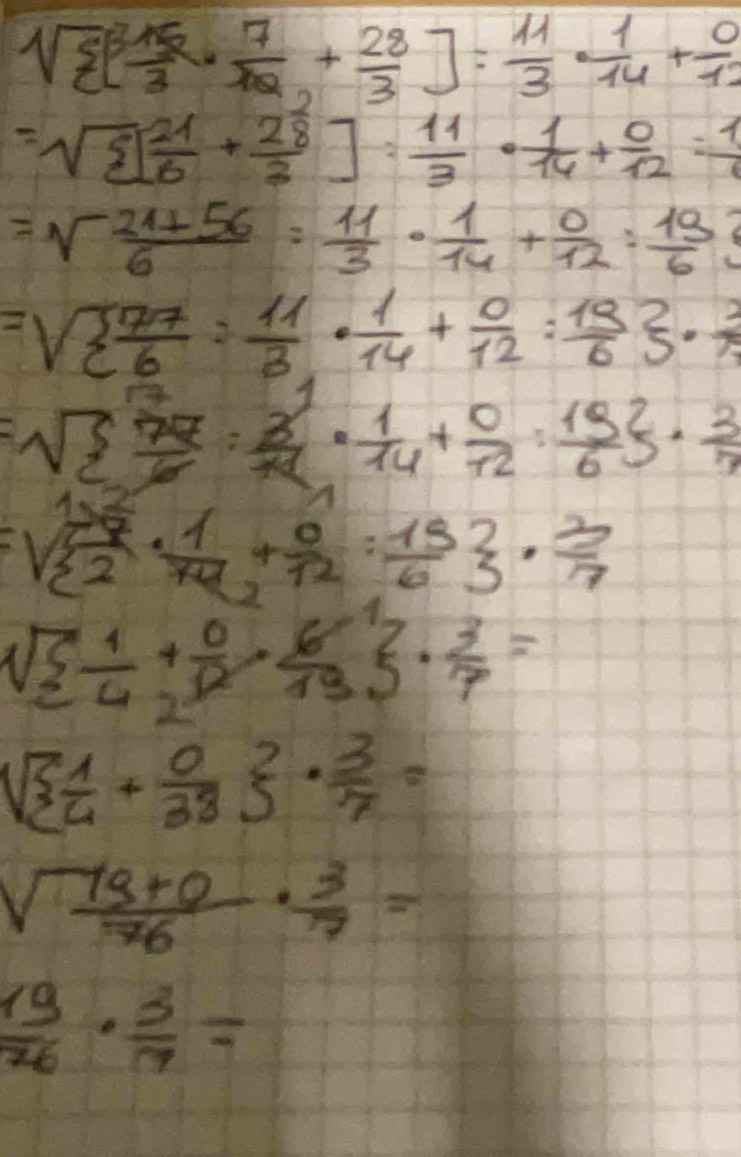 √{[15/3 · 7/10 + 28/3] : 11/3 · 1/14 + 0/12
= √{[21/6 + 28/3] : 11/3 · 1/14 + 0/12 :
= √ 21+56/6 : 11/3 · 1/14 + 0/12 : 19/6 }
= √{77/6 : 11/3 · 1/14 + 0/12 : 19/6 } ·
= √{ 77/6 : 3/11 · 1/14 + 0/12 : 19/6 } · 3/7
= √{7/2 · 1/14 + 0/12 : 19/6 } · 3/7
√{1/4 + 0/12 · 6/19 } · 3/7 =
√{1/4 + 0/38 } · 3/7 =
√ 19+0/76 · 3/7 =
19/76 · 3/7 =